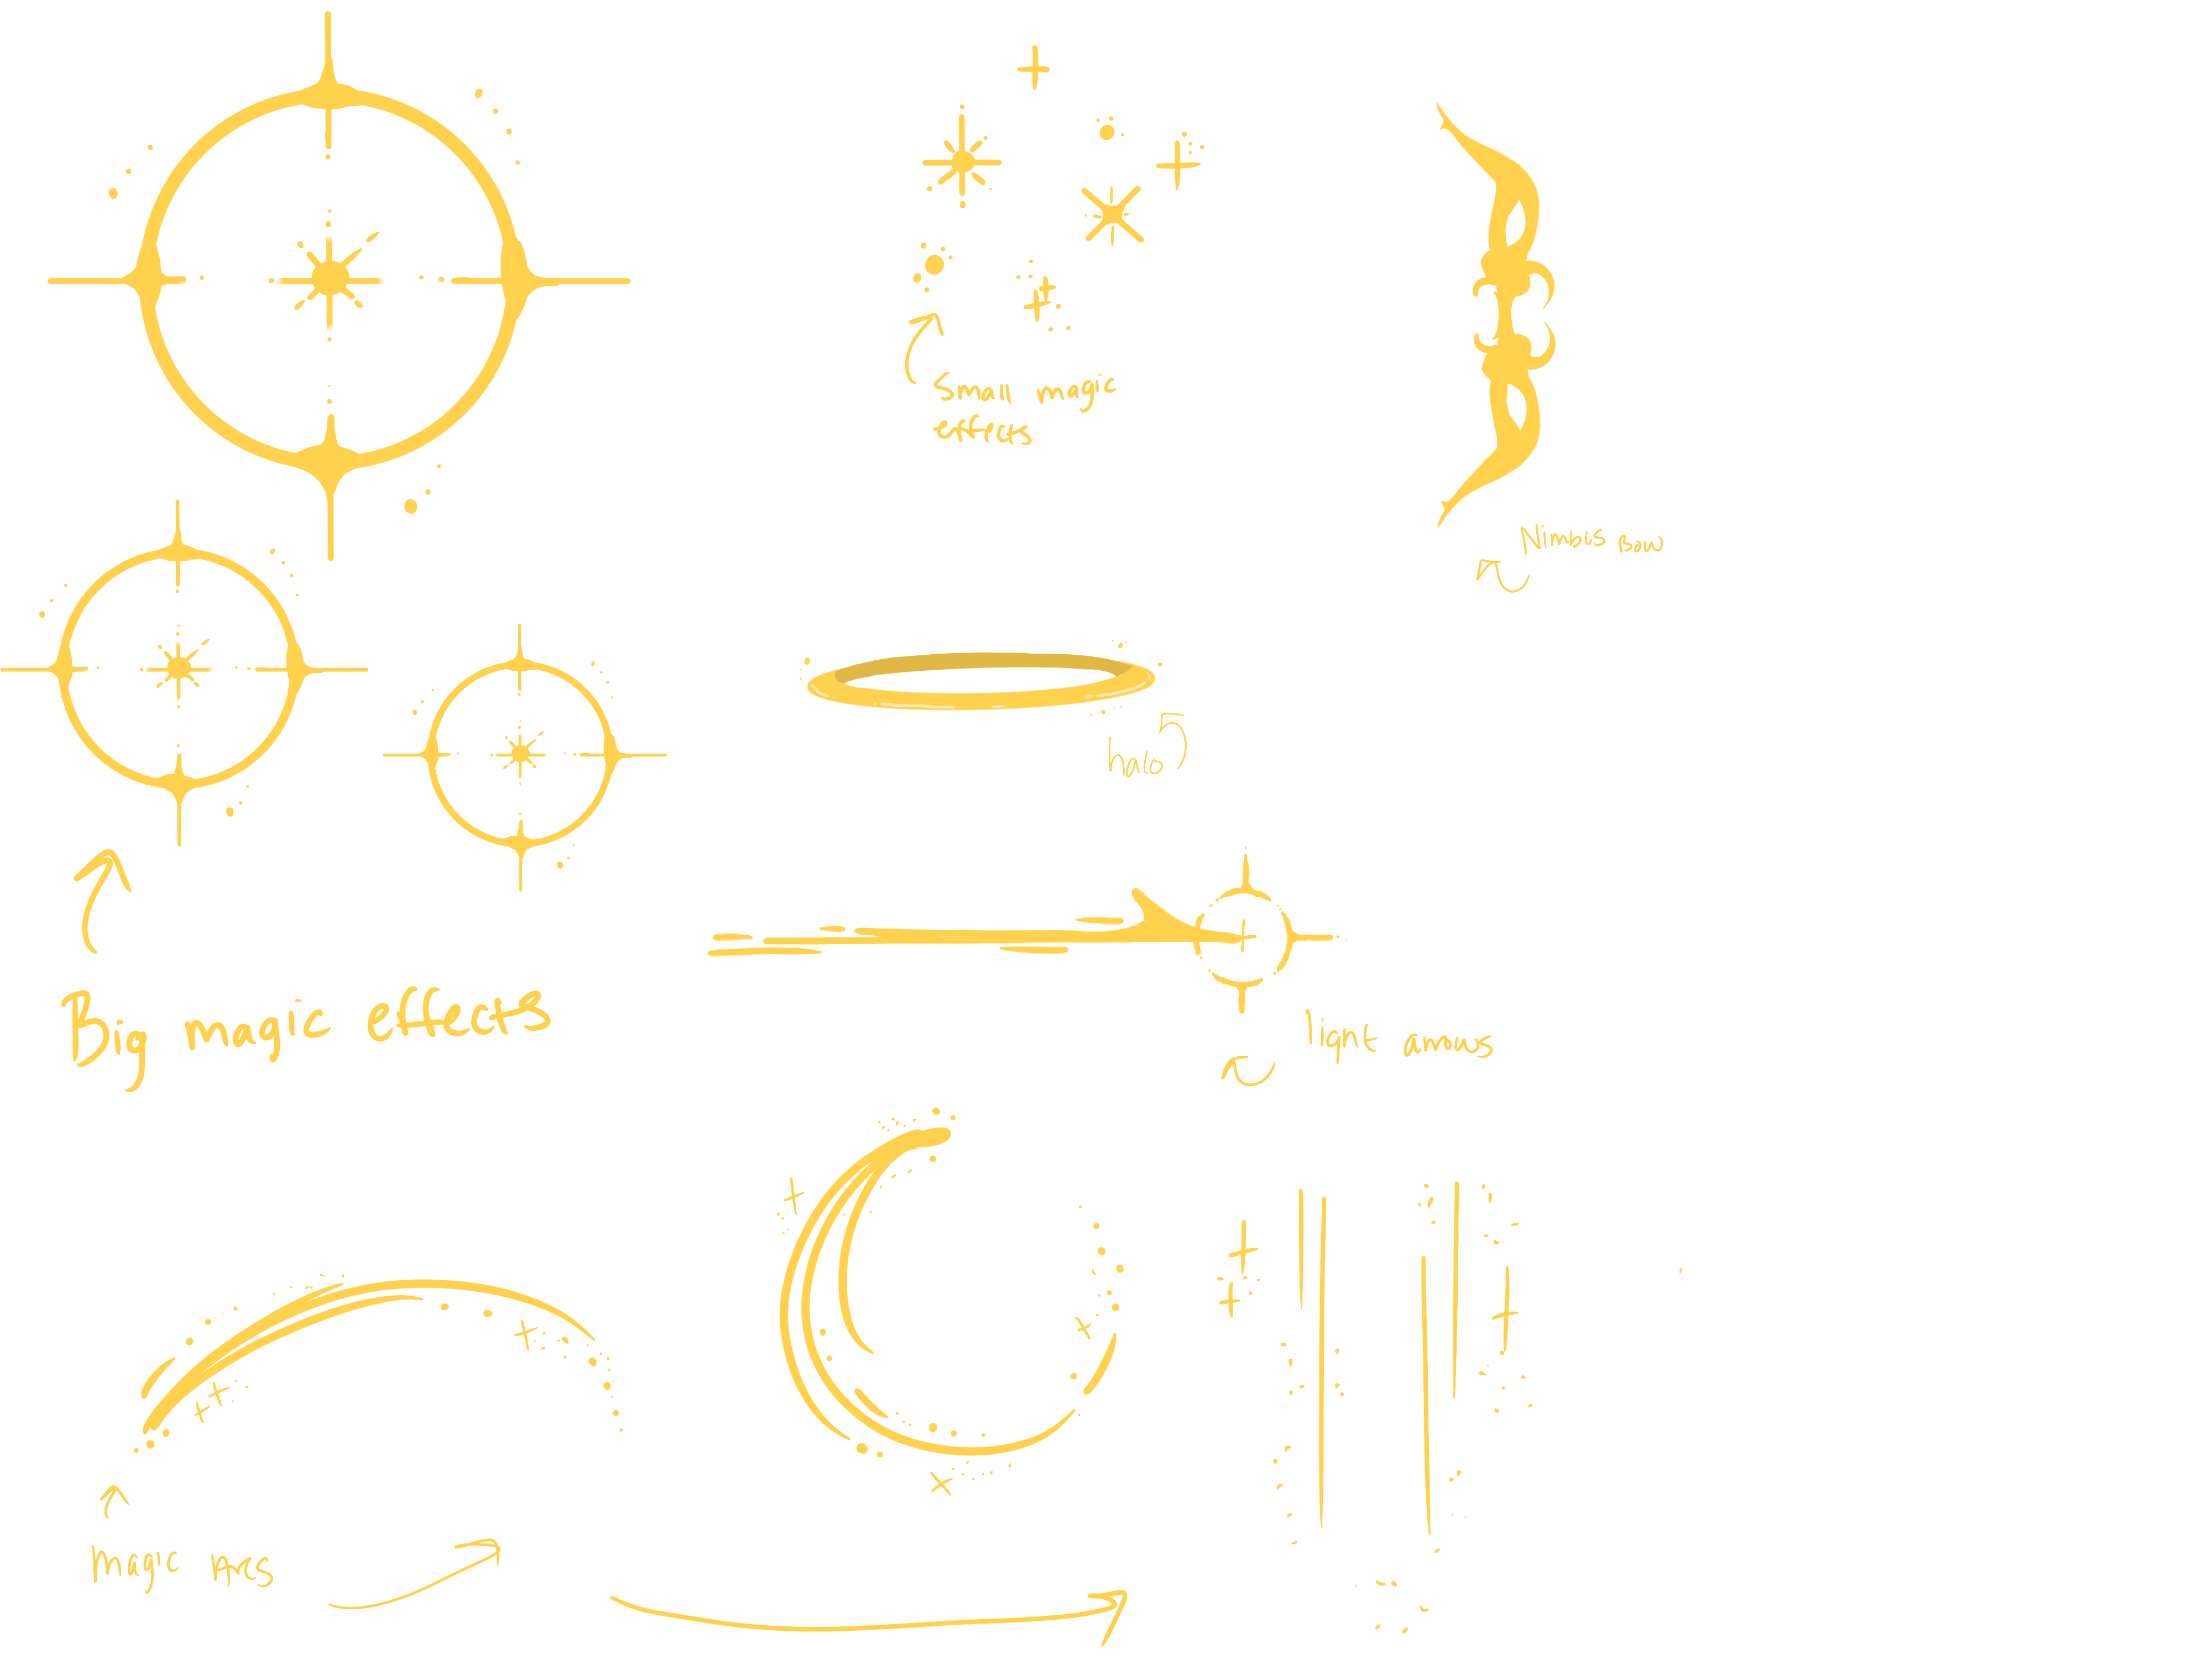 Small magic
effects
Nimus Bow
halo
Big magic effects
light arrows
magic hits